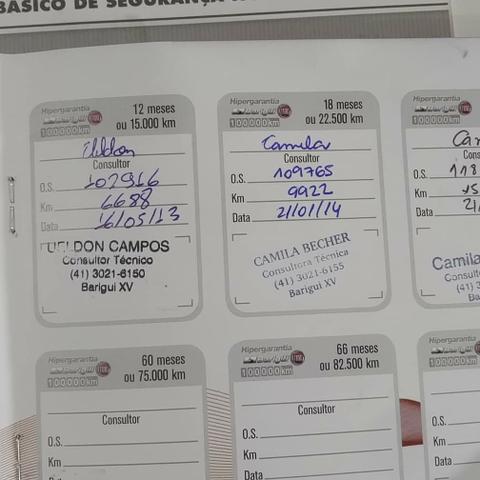 BÁSICO DE SEGURANÇA
Hipergarantia
100000km
12 meses
ou 15.000 km
Consultor
O.S. 102916
Km 6688
Data 16/05/13
UELDON CAMPOS
Consultor Técnico
(41) 3021-6150
Barigui XV
Hipergarantia
100000km
18 meses
ou 22.500 km
Camila
Consultor
O.S. 109765
Km 9922
Data 21/01/14
CAMILA BECHER
Consultora Técnica
(41) 3021-6155
Barigui XV
Hipergarantia
100000km
O.S. 118
Km
Data
Camila
(41) 3
Hipergarantia
100000km
60 meses
ou 75.000 km
Consultor
O.S.
Km
Data
Hipergarantia
100000km
66 meses
ou 82.500 km
Consultor
O.S.
Km
Data
Hipergarantia
O.S.
Km